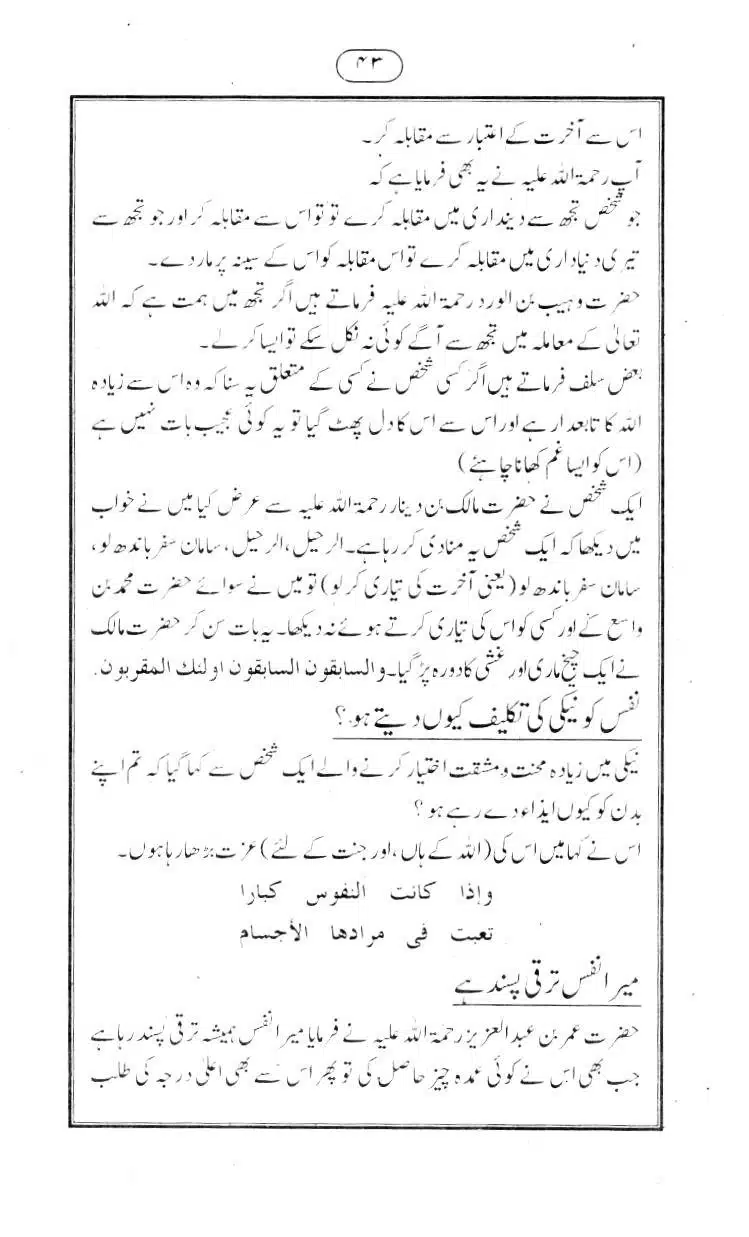 ۴۳
اس سے آخرت کے اعتبار سے مقابلہ کر۔
آپ رحمۃ اللہ علیہ نے یہ بھی فرمایا ہے کہ
جو شخص تجھ سے دینداری میں مقابلہ کرے تو تو اس سے مقابلہ کر اور جو تجھ سے
تیری دنیاداری میں مقابلہ کرے تو اس مقابلہ کو اس کے سینہ پر مار دے۔
حضرت وہیب بن الورد رحمۃ اللہ علیہ فرماتے ہیں اگر تجھ میں ہمت ہے کہ اللہ
تعالیٰ کے معاملہ میں تجھ سے آگے کوئی نہ نکل سکے تو ایسا کر لے۔
بعض سلف فرماتے ہیں اگر کسی شخص نے کسی کے متعلق یہ سنا کہ وہ اس سے زیادہ
اللہ کا تابعدار ہے اور اس سے اس کا دل پھٹ گیا تو یہ کوئی عجیب بات نہیں ہے
(اس کو ایسا غم کھانا چاہئے)
ایک شخص نے حضرت مالک بن دینار رحمۃ اللہ علیہ سے عرض کیا میں نے خواب
میں دیکھا کہ ایک شخص یہ منادی کر رہا ہے۔ الرحیل، الرحیل، سامان سفر باندھ لو،
سامان سفر باندھ لو (یعنی آخرت کی تیاری کر لو) تو میں نے سوائے حضرت محمد بن
واسع کے اور کسی کو اس کی تیاری کرتے ہوئے نہ دیکھا۔ یہ بات سن کر حضرت مالک
نے ایک چیخ ماری اور غشی کا دورہ پڑ گیا۔ والسابقون السابقون اولئك المقربون.
نفس کو نیکی کی تکلیف کیوں دیتے ہو؟
نیکی میں زیادہ محنت و مشقت اختیار کرنے والے ایک شخص سے کہا گیا کہ تم اپنے
بدن کو کیوں ایذاء دے رہے ہو؟
اس نے کہا میں اس کی (اللہ کے ہاں، اور جنت کے لئے) عزت بڑھا رہا ہوں۔
وإذا كانت النفوس كبارا
تعبت فى مرادها الأجسام
میرا نفس ترقی پسند ہے
حضرت عمر بن عبدالعزیز رحمۃ اللہ علیہ نے فرمایا میرا نفس ہمیشہ ترقی پسند رہا ہے
جب بھی اس نے کوئی عمدہ چیز حاصل کی تو پھر اس سے بھی اعلیٰ درجہ کی طلب